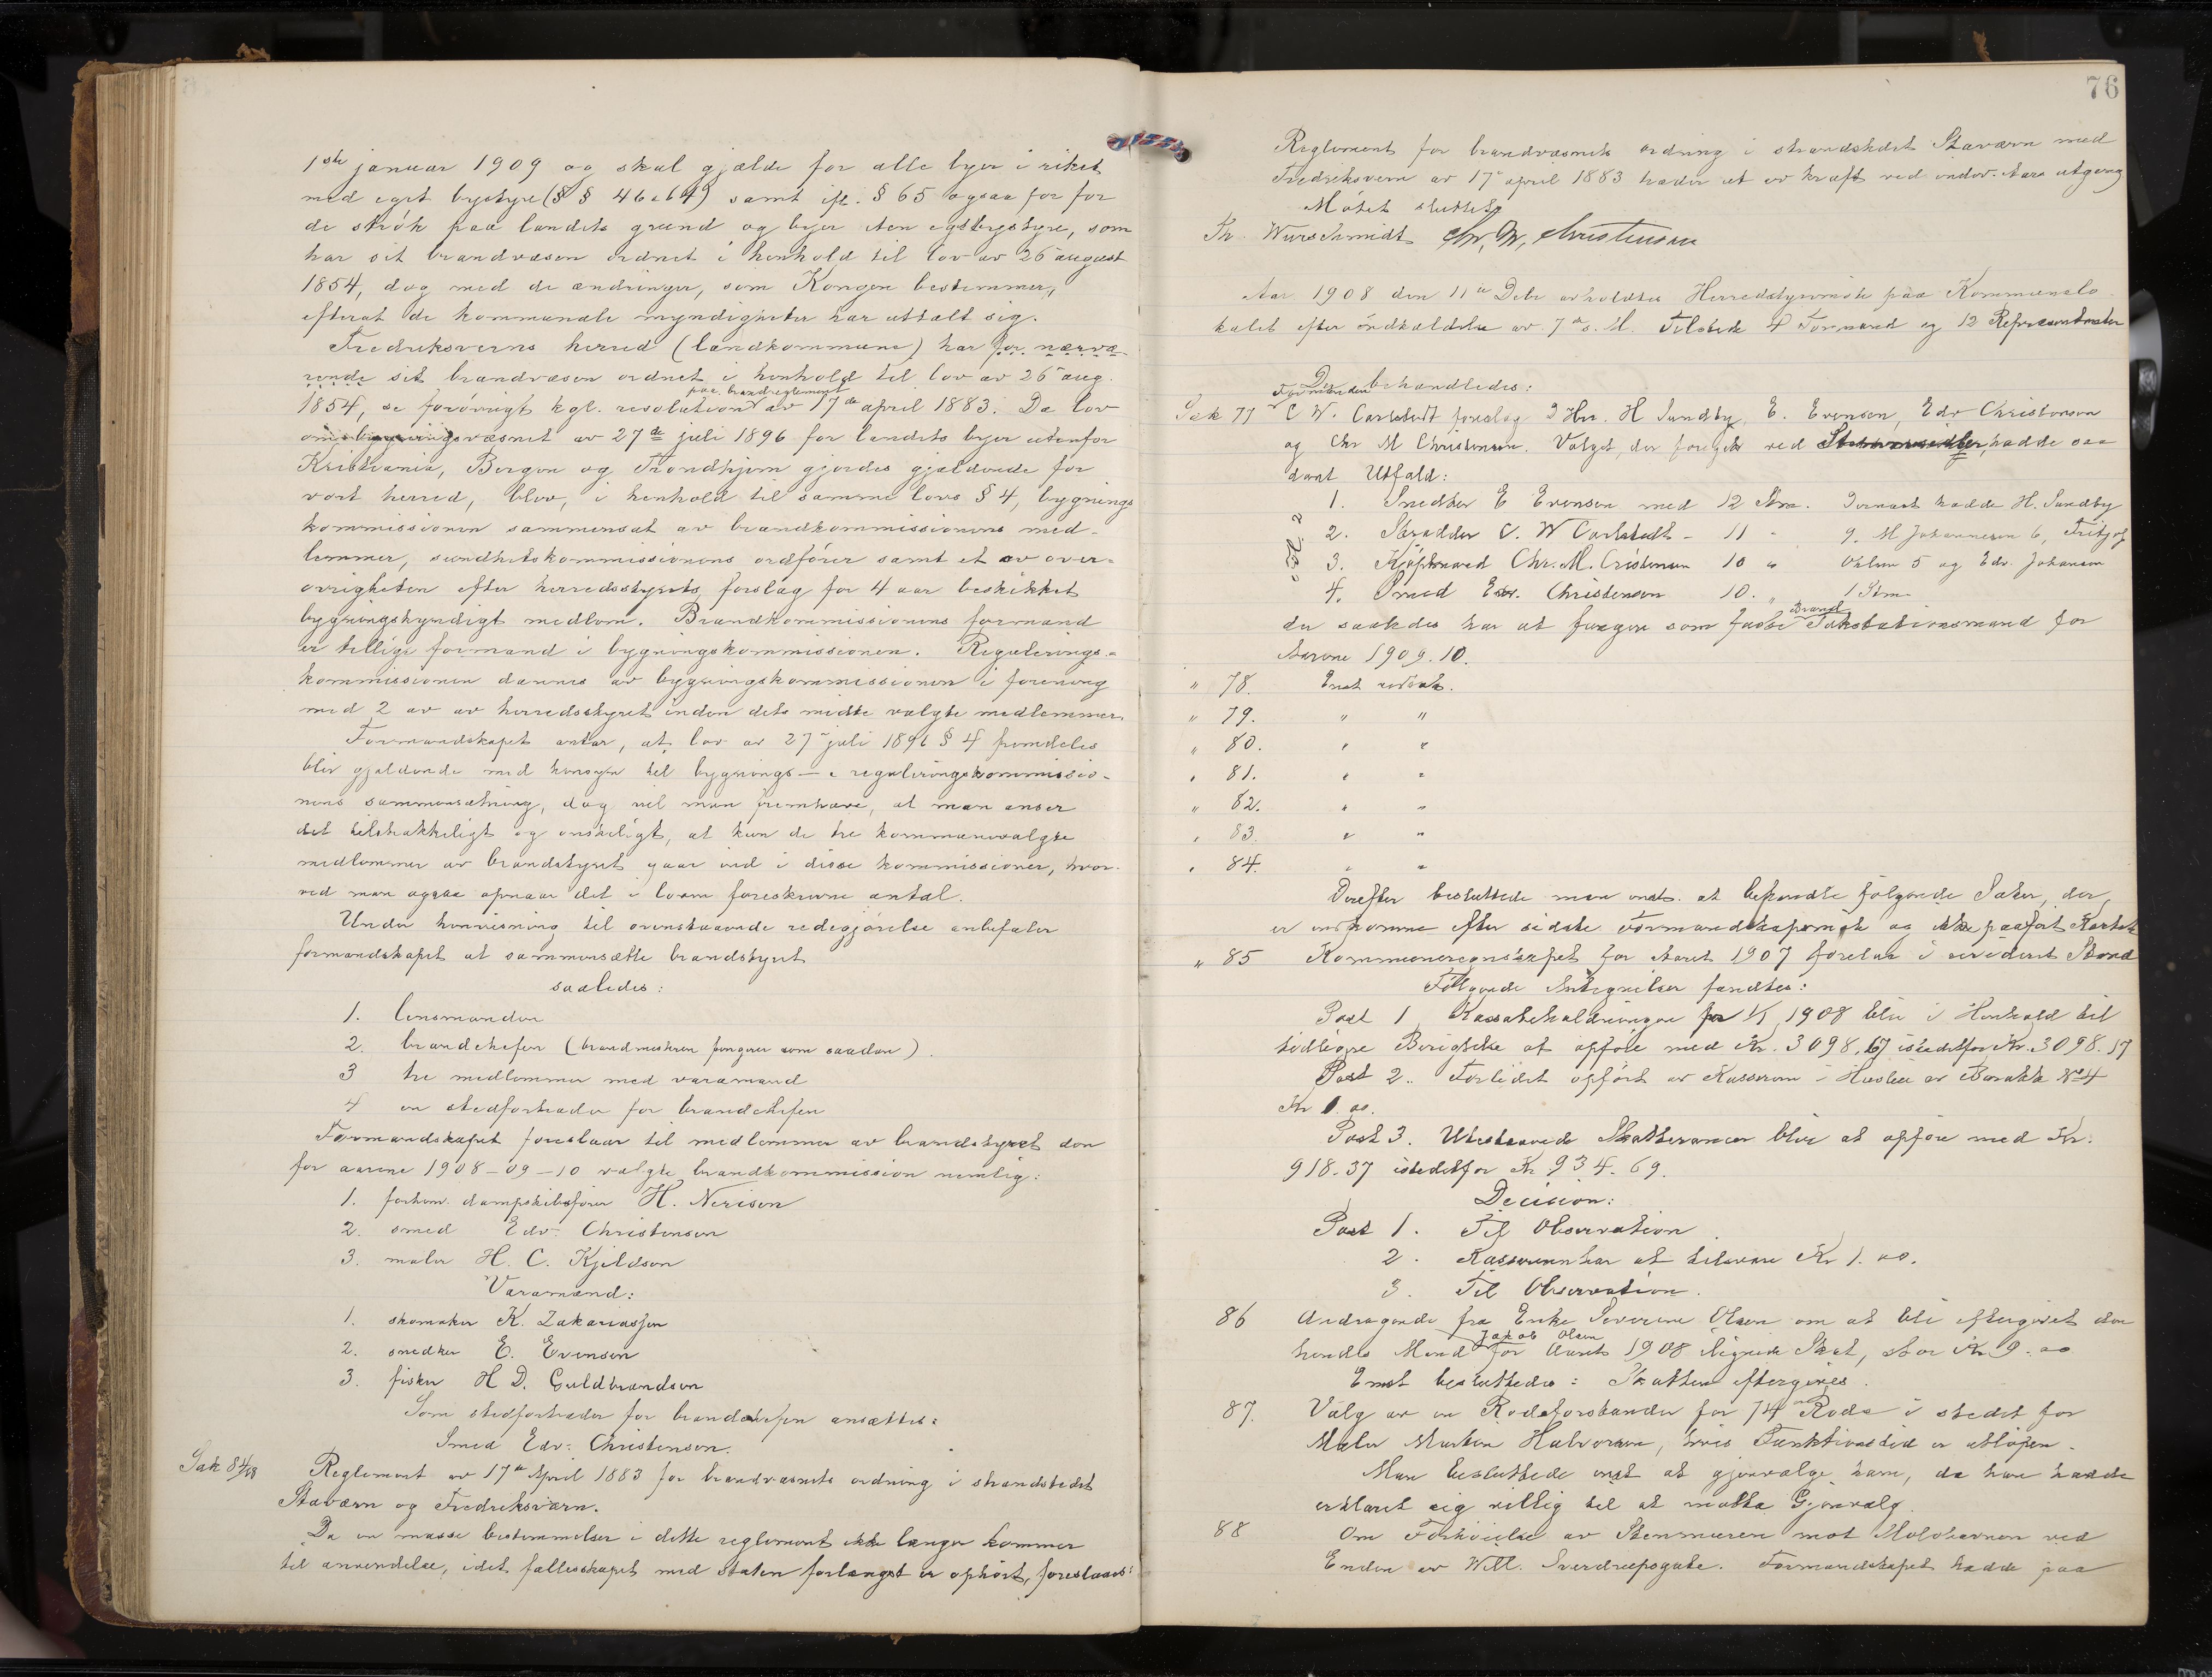 1ste januar 1909 og skal gjælde for alle byer i riket
med eget bystyre (§ § 46 a 64) samt ifl. § 65 ogsaa for for
de strøk paa landets grund og byer uten eget bystyre, som
har sit brandvæsen ordnet i henhold til lov av 26 august
1854, dog med de ændringer, som Kongen bestemmer,
efterat de kommunale myndigheter har uttalt sig.
Fredriksverns herred (landkommune) har for nærvæ-
rende sit brandvæsen ordnet i henhold til lov av 26 aug.
paa brandreglement
1854, se forøvrigt kgl. resolution av 17de april 1883. Da lov
om bygningsvæsnet av 27de juli 1896 for landets byer utenfor
Kristiania, Bergen og Trondhjem gjordes gjældende for
vort herred, blev, i henhold til samme lovs § 4, bygnings
kommissionen sammensat av brandkommissionens med-
lemmer, sundhetskommissionens ordfører samt et av over-
øvrigheten efter herredsstyrets forslag for 4 aar beskikket
bygningskyndigt medlem. Brandkommissionens formand
er tillige formand i bygningskommissionen. Regulerings-
kommissionen dannes av bygningskommissionen i forening
med 2 av av herredsstyret inden dets midte valgte medlemmer.
Formandskapet antar, at lov av 27 juli 1896 § 4 fremdeles
blir gjeldende med hensyn til bygnings- & reguleringskommissio-
nens sammensætning, dog vil man fremhæve, at man anser
det tilstrækkeligt og ønskeligt, at kun de tre kommunevalgte
medlemmer av brandstyret gaar ind i disse kommissioner, hvor-
ved man ogsaa opnaar det i loven foreskrevne antal.
Under henvisning til ovenstaaende redegjørelse anbefaler
formandskapet at sammensætte brandstyret
saaledes:
1. lensmanden
2. brandchefen (brandmesteren fungerer som saadan).
3 tre medlemmer med varamænd
4 en stedfortræder for brandchefen
Formandskapet foreslaar til medlemmer av brandstyret den
for aarene 1908-09-10 valgte brandkommission nemlig:
1. forhenv. dampskibsfører H. Nerisen
2. smed Edv. Christensen
3. maler H. C. Kjeldsen
Varamænd:
1. skomaker K. Zakariassen
2. snedker E. Evensen
3. fisker H D. Guldbrandsen
Som stedfortræder for brandchefen ansættes:
Smed Edv. Christensen.
Sak 84/08 Reglement av 17de April 1883 for brandvæsnets ordning i strandstedet
Staværn og Fredriksværn.
Da en masse bestemmelser i dette reglement ikke længer kommer
til anvendelse, idet fællesskapet med staten forlængst er ophørt, foreslaaes:
76
Reglement for brandvæsnets ordning i strandstedet Staværn med
Fredriksvern av 17 april 1883 træder ut av kraft ved indev. Aars utgang
Møtet sluttet
Th. Wurschmidt Chr. M. Christensen
Aar 1908 den 11te Debr avholdtes Herredstyremøte paa Kommunelo
kalet efter indkaldelse av 7de s. M. Tilstede 4 Formænd og 12 Repræsentanter
Der behandledes:
Formanden
Sak 77 C W. Carlstedt foreslog D'Hrr. H Sundby, E. Evensen, Edv Christensen
og Chr M Christensen. Valget, der foregik ved hadde saa
dant Utfald:
1. Snedker E Evensen med 12 Stm. Dernæst hadde H. Sundby
2. Skrædder C. W Carlstedt - 11 " 9. M Johannesen 6, Fritjof
3. Kjøpmand Chr. M. Cristensen 10 " Ohlsen 5 og Edv. Johansen
4. Smed Edv. Christensen 10. " 1 Stm.
Brand
der saaledes har at fungere som faste Takstationsmænd for
Aarene 1909. 10.
" 78. Enst vedtat.
" 79. " "
" 80. " "
" 81. " "
" 82. " "
" 83. " "
" 84. " "
Derefter besluttede man enst. at behandle følgende Saker, der
er indkomne efter sidste Formandskapsmøte og ikke paaført Kartet
" 85 Kommuneregnskapet for Aaret 1907 forelaa i revideret Stand
Følgende Antegnelser fandtes:
Post 1 Kassabeholdningen pr 1/1 1908 blir i Henhold til
tidligere Berigtelse at opføre med Kr. 3098.67 istedetfor Kr. 3098.17
Post 2. Forlidet opført av Kasseren i Husleie av Barakke No 4
Kr 1.00.
Post 3. Utestaaende Skatterancer blir at opføre med Kr.
918.37 istedetfor Kr 934.69.
Decision:
Post 1. Til Observation
2. Kassereren har at tilsvare Kr 1.00.
3. Til Observation.
86 Andragende fra Enke Severine Olsen om at bli eftergivet den
Jakob Olsen
hendes Mand for Aaret 1908 ilignede Skat, stor Kr 9.00
Enst besluttedes: Skatten eftergives.
87. Valg av en Rodeforstander for 14de Rode i stedet for
Maler Morten Halvorsen, hvis Funktionstid er utløpen.
Man besluttede enst at gjenvælge ham, da han hadde
erklæret sig villig til at motta Gjenvalg.
88 Om Forhøielse av Stenmuren mot Molohavnen ved
Enden av Will. Sverdrupsgate. Formandskapet hadde paa